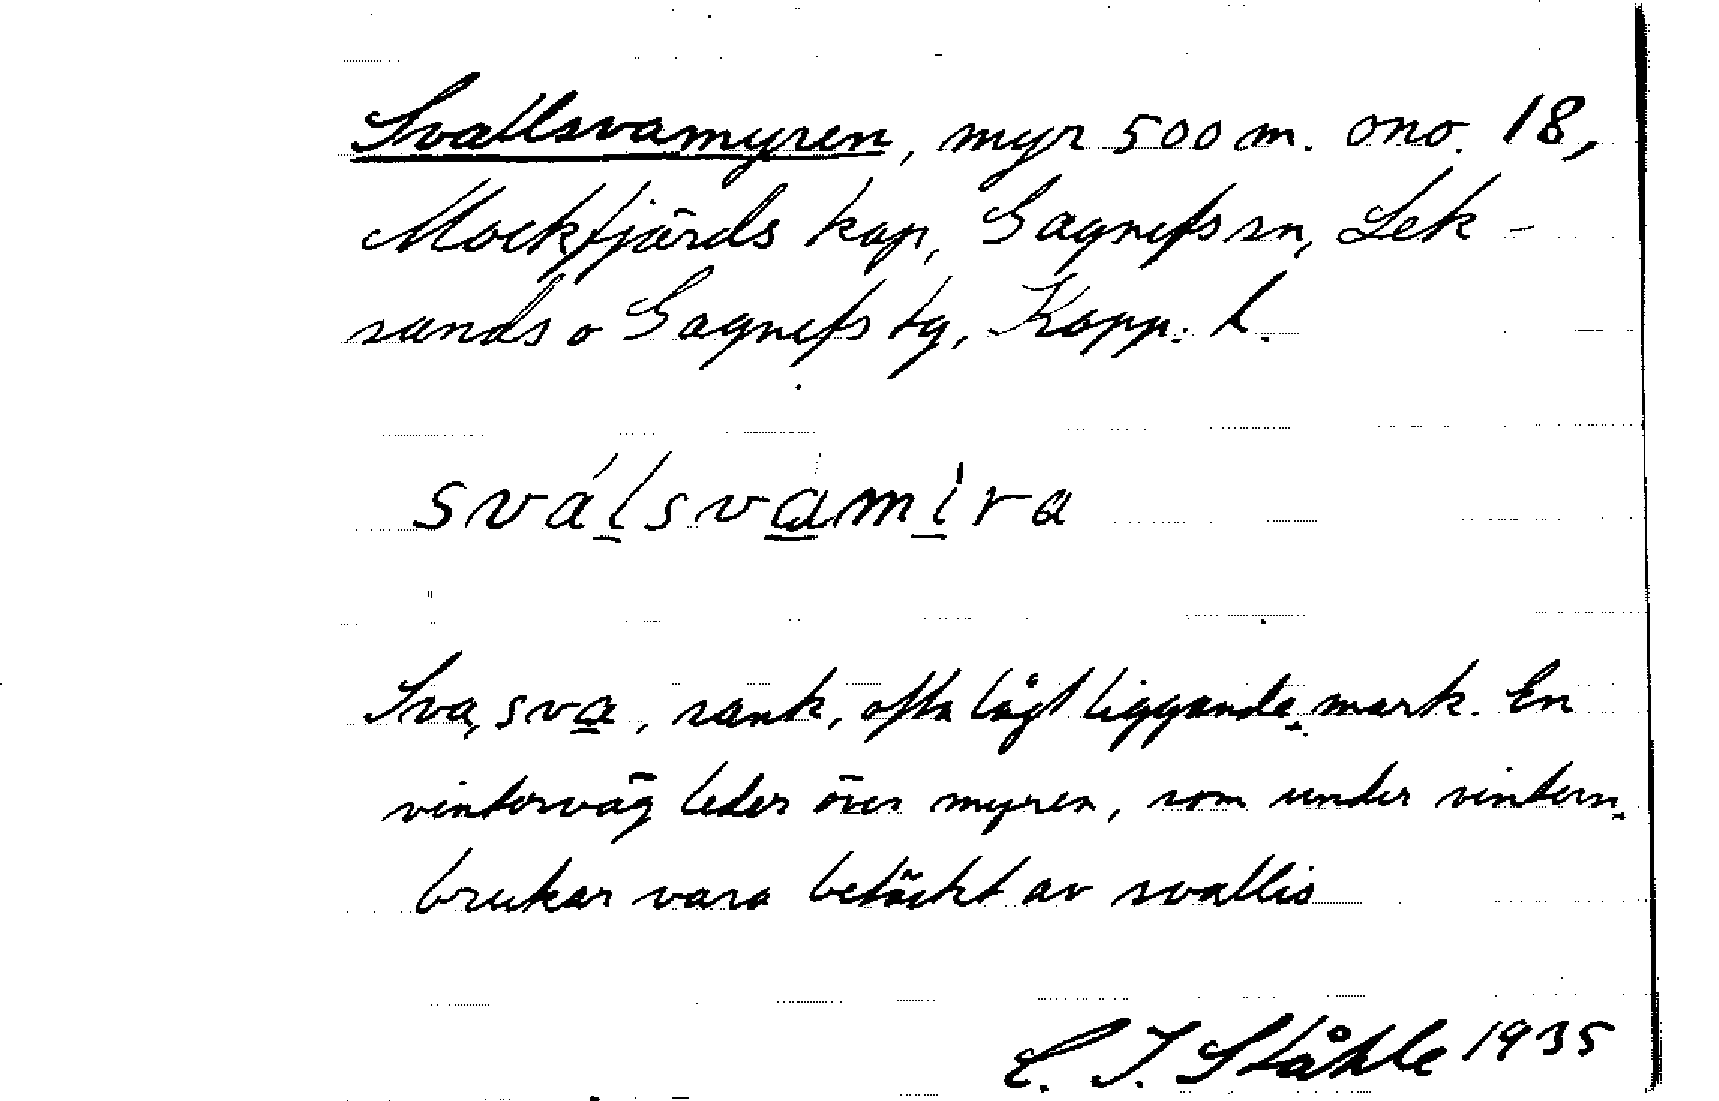 Svallsvamyren, myr 500 m. ono. 18,
Mockfjärds kap, Gagnefs sn, Lek-
sands o Gagnefs tg, Kopp. l.
sválsvamìra
Sva, sva, sank, ofta lågt liggande mark. En
vinterväg leder över myren, som under vintern
brukar vara betäckt av svallis
C. I. Ståhle 1935